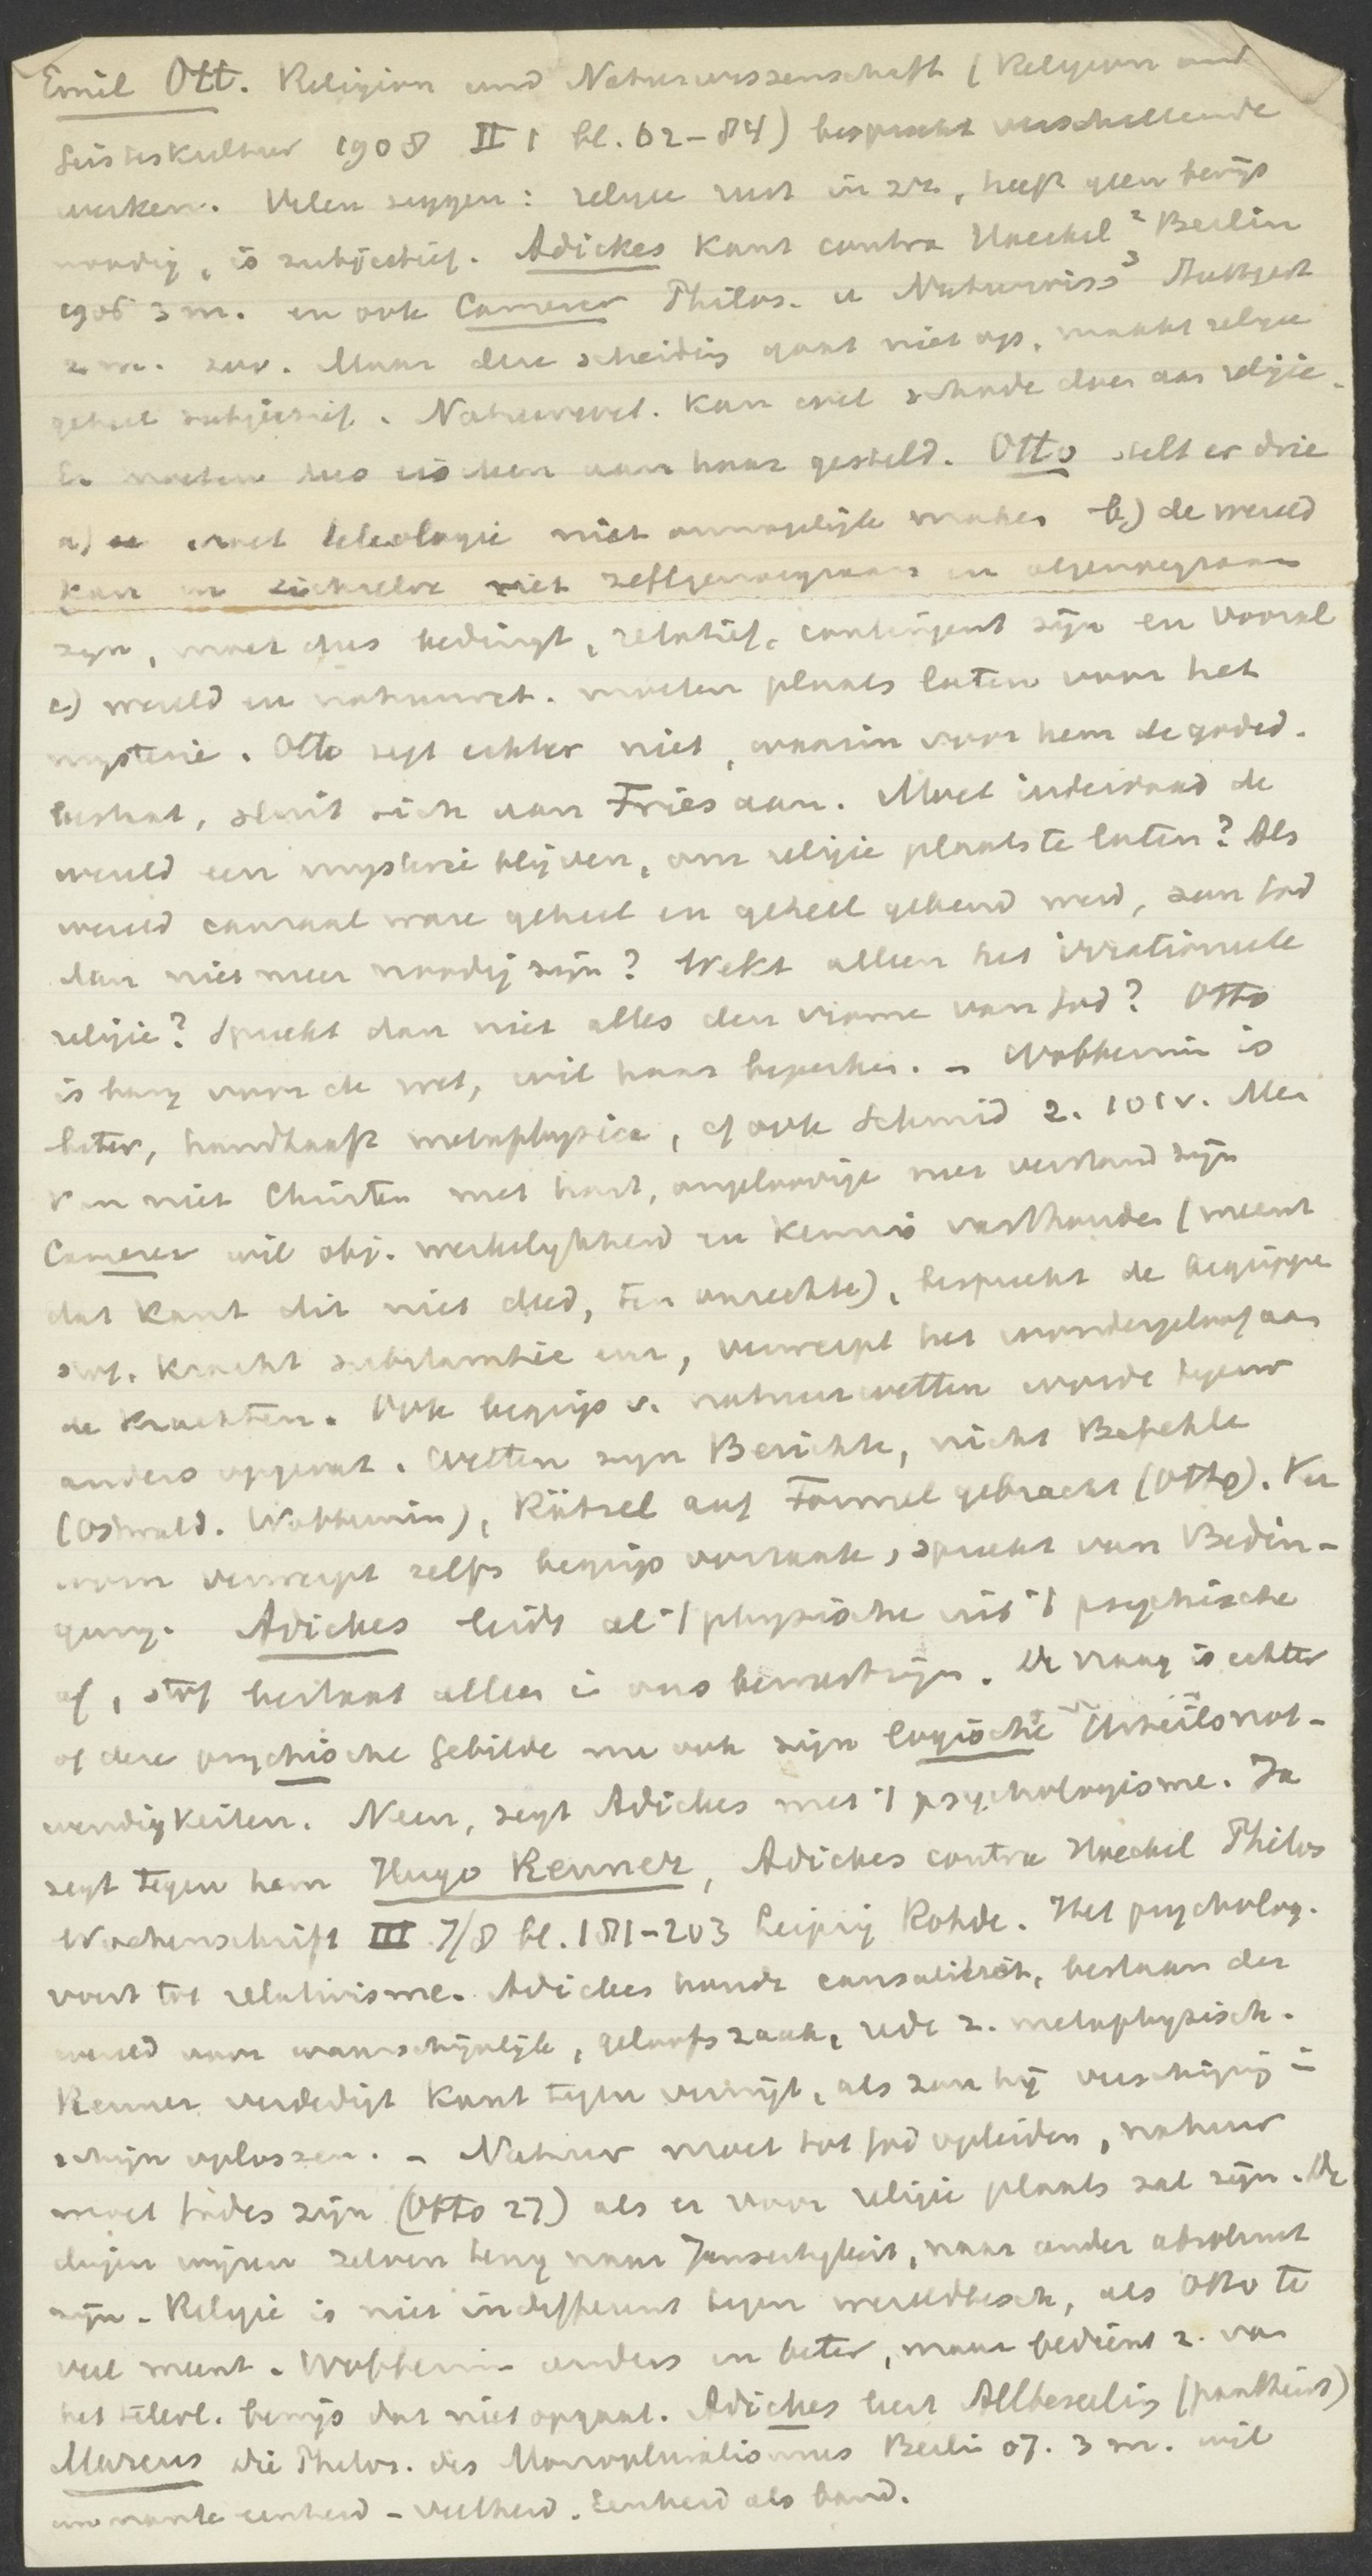 Emil Ott. Religion und Naturwissenschaft (Religion und
Geisteskultur 1908 II 1 bl. 62-84) bespreekt verschillende
werken. Velen zeggen: religie rust in zich, heeft geen bewijs
noodig, is subjectief. Adickes Kant contra Haeckel² Berlin
1906 3 m. en ook Camerer Philos. u Naturwiss³ Stuttgart
2 m. zoo. Maar deze scheiding gaat niet op, maakt religie
geheel subjectief. Natuurwet. kan wel schade doen aan religie.
Er moeten dus eischen aan haar gesteld. Otto stelt er drie
a) moet teleologie niet onmogelijk maken b) de wereld
kan in zichzelve niet zelfgenoegzaam en algenoegzaam
zijn, moet dus bedingt, relatief, contingent zijn en vooral
c) wereld en natuurwet. moeten plaats laten voor het
mysterie. Otto zegt echter niet, waarin voor hem de godsd.
bestaat, sluit zich aan Fries aan. Moet inderdaad de
wereld een mysterie blijven, om religie plaats te laten? Als
wereld causaal ware geheel en geheel gekend werd, zou God
dan niet meer noodig zijn? Wekt alleen het irrationeele
religie? Spreekt dan niet alles den name van God? Otto
is bang voor de wet, wil haar beperken. - Wobbermin is
beter, handhaaft metaphysica, cf ook Schmid 2. 101v. Men
kan niet Christen met hart, ongeloovige met verstand zijn
Camerer wil obj. werkelijkheid en kennis vasthouden (meent
dat Kant dit niet deed, ten onrechte), bespreekt de begrippen
stof, kracht substantie enz, verwerpt het wondergeloof aan
de krachten. Ook begrip v. natuurwetten worde tegenw
anders opgevat. Wetten zijn Berichte, nicht Befehle
(Ostwald. Wobbermin), Rätsel auf Formel gebracht (Otto). Ver
worn verwerpt zelfs begrip oorzaak, spreekt van Bedin-
gung. Adickes leidt al 't physische uit 't psychische
af, stof bestaat alleen in ons bewustzijn. De vraag is echter
of deze psychische Gebilde nu ook zijn logische Urteilsnot-
wendigkeiten. Neen, zegt Adickes met 't psychologisme. Ja
zegt tegen hem Hugo Renner, Adickes contra Haeckel Philos
Wochenschrift III 7/8 bl. 181-203 Leipzig Rohde. Het psycholog.
voert tot relativisme. Adickes houdt causaliteit, bestaan der
wereld voor waarschijnlijk, geloofszaak, rede z. metaphysisch.
Renner verdedigt Kant tegen verwijt, als zou hij verschijning in
schijn oplossen. - Natuur moet tot God opleiden, natuur
moet Godes zijn (Otto 27) als er voor religie plaats zal zijn. De
dingen wijzen zelven terug naar Jenseitigkeit, naar ander absoluut
zijn. Religie is niet indifferent tegen wereldbesch, als Otto te
veel meent. Wobbermin anders en beter, maar bedient z. van
het teleol. bewijs dat niet opgaat. Adickes leert Allbeseelung (pantheist)
Marcus Die Philos. des Monopluralismus Berlin 07. 3 m. wil
immanente eenheid - veelheid. Eenheid als band.